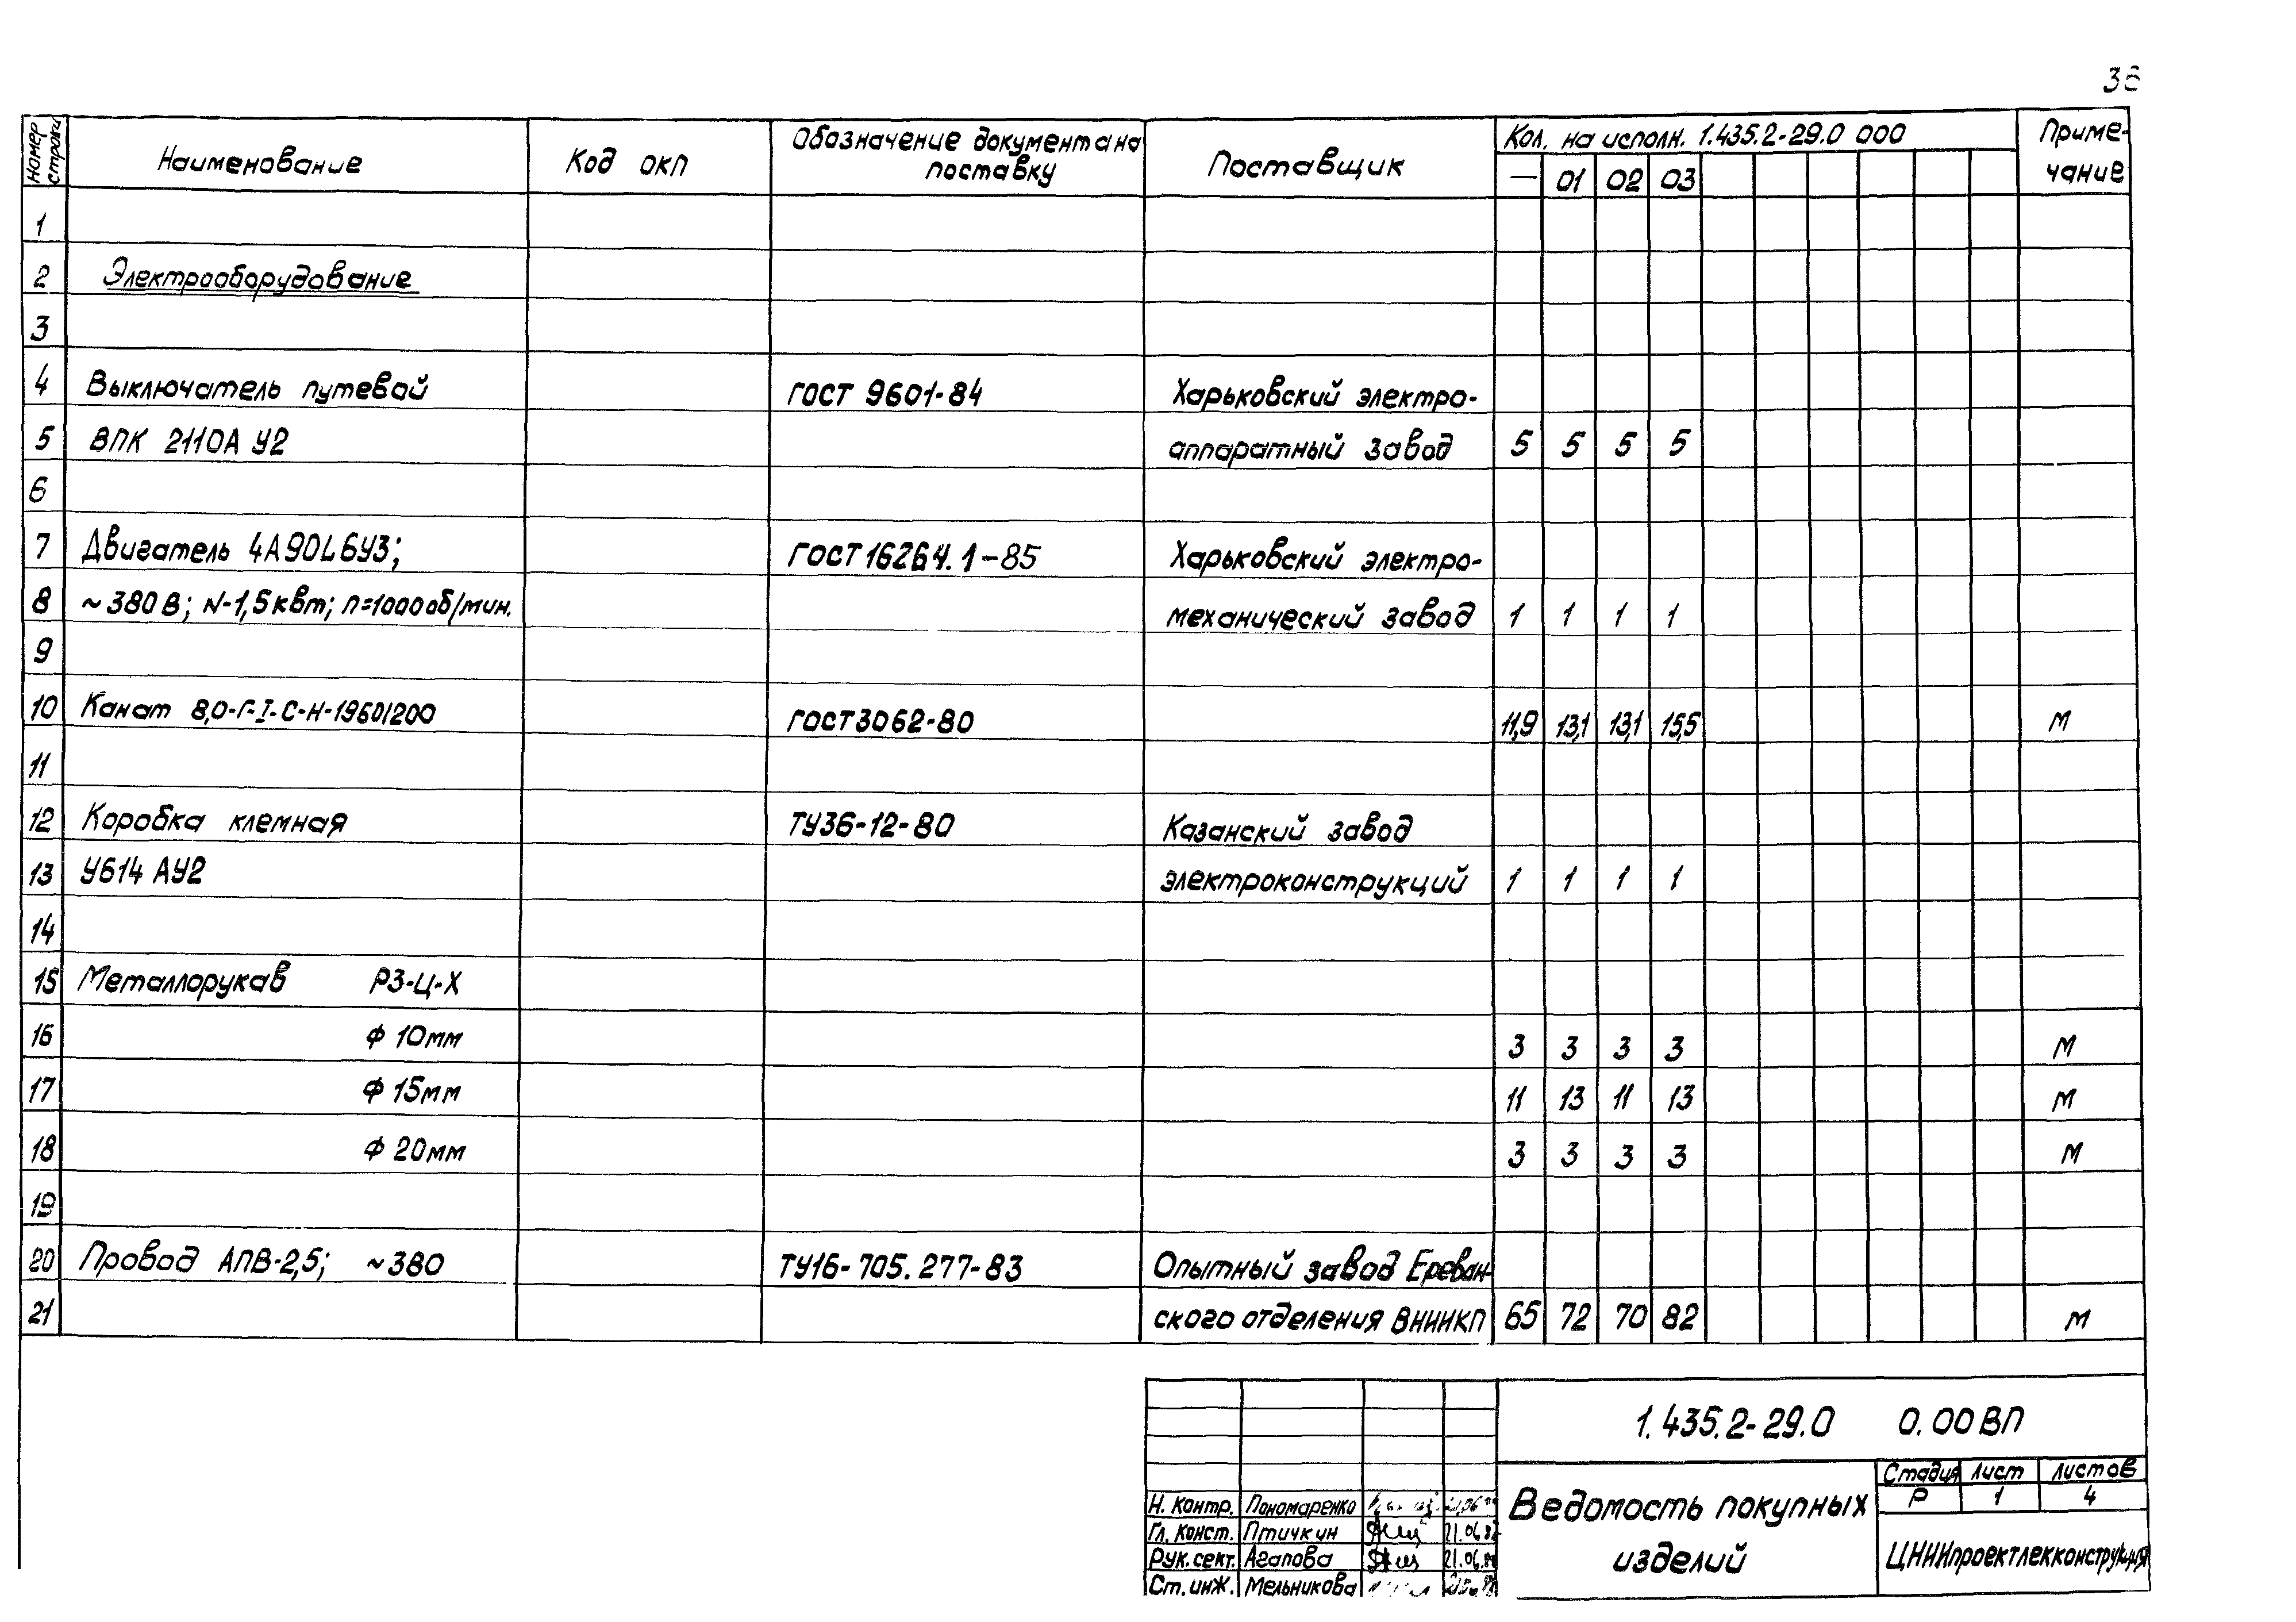 Номер строки Наименование Код ОКП Обозначение документа на поставку Поставщик Кол. на исполн. 1.435.2-29.0 000 Приме-чание
— 01 02 03
1
2 Электрооборудование
3
4 Выключатель путевой ГОСТ 9601-84 Харьковский электро-
5 ВПК 2110А У2 аппаратный завод 5 5 5 5
6
7 Двигатель 4А90L6У3; ГОСТ 16264.1-85 Харьковский электро-
8 ~380В; N-1,5квт; n=1000об/мин. механический завод 1 1 1 1
9
10 Канат 8,0-Г-I-С-Н-1960/200 ГОСТ3062-80 11,9 13,1 13,1 15,5 м
11
12 Коробка клемная ТУ36-12-80 Казанский завод
13 У614 АУ2 электроконструкций 1 1 1 1
14
15 Металлорукав РЗ-Ц-Х
16 Ф 10мм 3 3 3 3 м
17 Ф 15мм 11 13 11 13 м
18 Ф 20мм 3 3 3 3 м
19
20 Провод АПВ-2,5; ~380 ТУ16-705.277-83 Опытный завод Ереван-
21 ского отделения ВНИИКП 65 72 70 82 м
1.435.2-29.0 0.00ВП
Ведомость покупных
изделий
Стадия Лист Листов
Р 1 4
ЦНИИпроектлегконструкция
Н. контр. Пономаренко
Гл. конст. Птичкин 21.06
Рук. сект. Агапова 21.06
Ст. инж. Мельникова